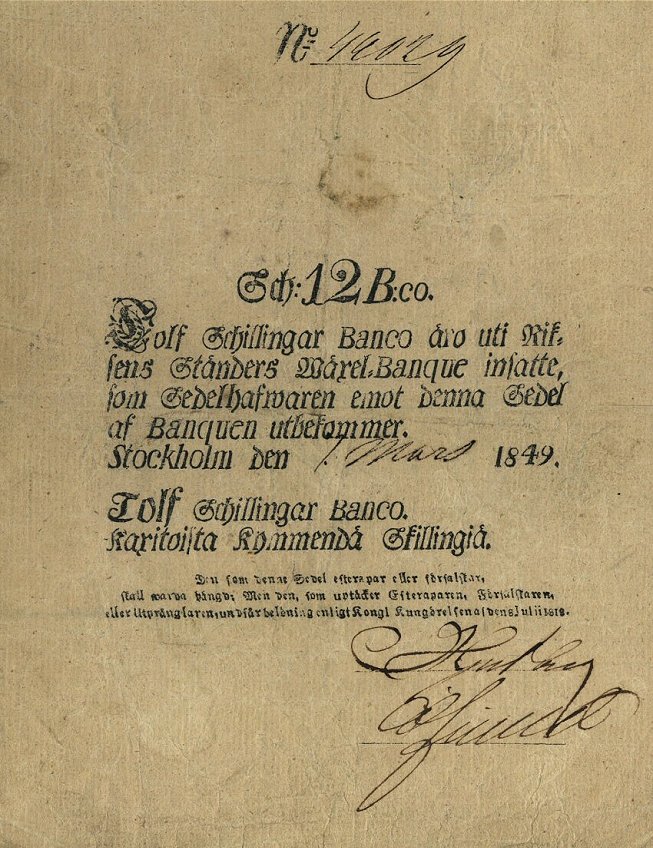 N:ro 49029
Sch: 12 B:co.
Tolf Schillingar Banco äro uti Rik-
sens Ständers Wäxel-Banque insatte,
som Sedelhafwaren emot denna Sedel
af Banquen utbekommer.
Stockholm den 1. Mars 1849.
Tolf Schillingar Banco.
Kaxitoista Kymmendä Skillingiä.
Den som denne Sedel efterapar eller förfalskar,
skall warda hängd; Men den, som uptäcker Efteraparen, Förfalskaren,
eller Utprånglaren, undfår belöning enligt Kongl Kungörelsen af den 8 Julii 1818.